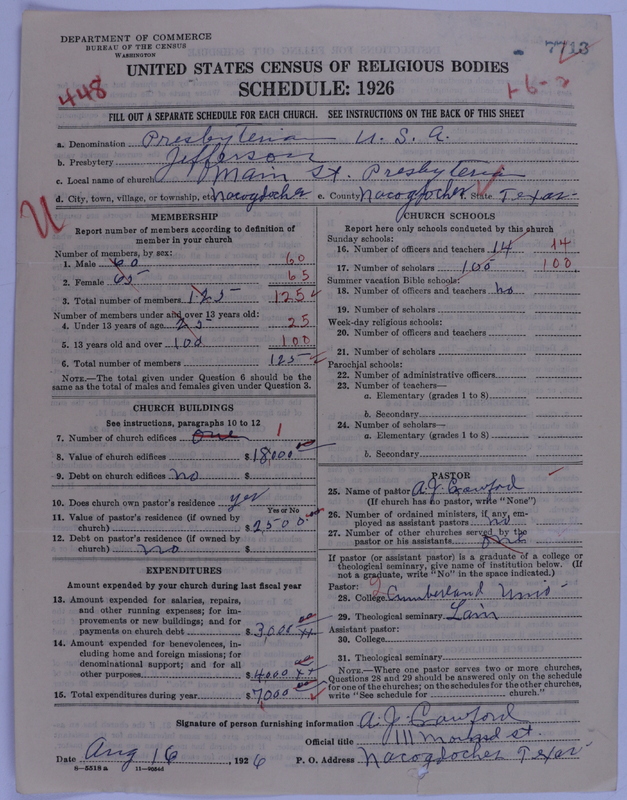 DEPARTMENT OF COMMERCE
BUREAU OF THE CENSUS
WASHINGTON
7713
UNITED STATES CENSUS OF RELIGIOUS BODIES
SCHEDULE: 1926
448
1-6-2
FILL OUT A SEPARATE SCHEDULE FOR EACH CHURCH. SEE INSTRUCTIONS ON THE BACK OF THIS SHEET
a. Denomination Presbyteria U. S. A.
b. Presbytery Jefferson
c. Local name of church Main St. Presbyteria
d. City, town, village, or township, etc. Nacogdoches e. County Nacogdoches f. State Texas
U
MEMBERSHIP
Report number of members according to definition of
member in your church
Number of members, by sex:
1. Male 60 60
2. Female 65 65
3. Total number of members 125 125
Number of members under and over 13 years old:
4. Under 13 years of age 25 25
5. 13 years old and over 100 100
6. Total number of members 125
NOTE.—The total given under Question 6 should be the
same as the total of males and females given under Question 3.
CHURCH BUILDINGS
See instructions, paragraphs 10 to 12
7. Number of church edifices one 1
8. Value of church edifices $ 18,000 00
9. Debt on church edifices no $
10. Does church own pastor's residence yes
Yes or No
11. Value of pastor's residence (if owned by
church) $ 2500 00
12. Debt on pastor's residence (if owned by
church) no $
EXPENDITURES
Amount expended by your church during last fiscal year
13. Amount expended for salaries, repairs,
and other running expenses; for im-
provements or new buildings; and for
payments on church debt $ 3000 00
14. Amount expended for benevolences, in-
cluding home and foreign missions; for
denominational support; and for all
other purposes $ 4000 00
15. Total expenditures during year $ 7000 00
CHURCH SCHOOLS
Report here only schools conducted by this church
Sunday schools:
16. Number of officers and teachers 14 14
17. Number of scholars 100 100
Summer vacation Bible schools:
18. Number of officers and teachers no
19. Number of scholars
Week-day religious schools:
20. Number of officers and teachers
21. Number of scholars
Parochial schools:
22. Number of administrative officers
23. Number of teachers—
a. Elementary (grades 1 to 8)
b. Secondary
24. Number of scholars—
a. Elementary (grades 1 to 8)
b. Secondary
PASTOR
25. Name of pastor A. J. Crawford
(If church has no pastor, write "None")
26. Number of ordained ministers, if any, em-
ployed as assistant pastors no
27. Number of other churches served by the
pastor or his assistants one
If pastor (or assistant pastor) is a graduate of a college or
theological seminary, give name of institution below. (If
not a graduate, write "No" in the space indicated.)
Pastor:
28. College Cumberland Univ
29. Theological seminary
Assistant pastor:
30. College
31. Theological seminary
NOTE.—Where one pastor serves two or more churches,
Questions 28 and 29 should be answered only on the schedule
for one of the churches; on the schedules for the other churches,
write "See schedule for church."
Signature of person furnishing information A. J. Crawford
Official title 111 st.
Date Aug 16, 1926 P. O. Address Nacogdoches Texas
8—5518 a